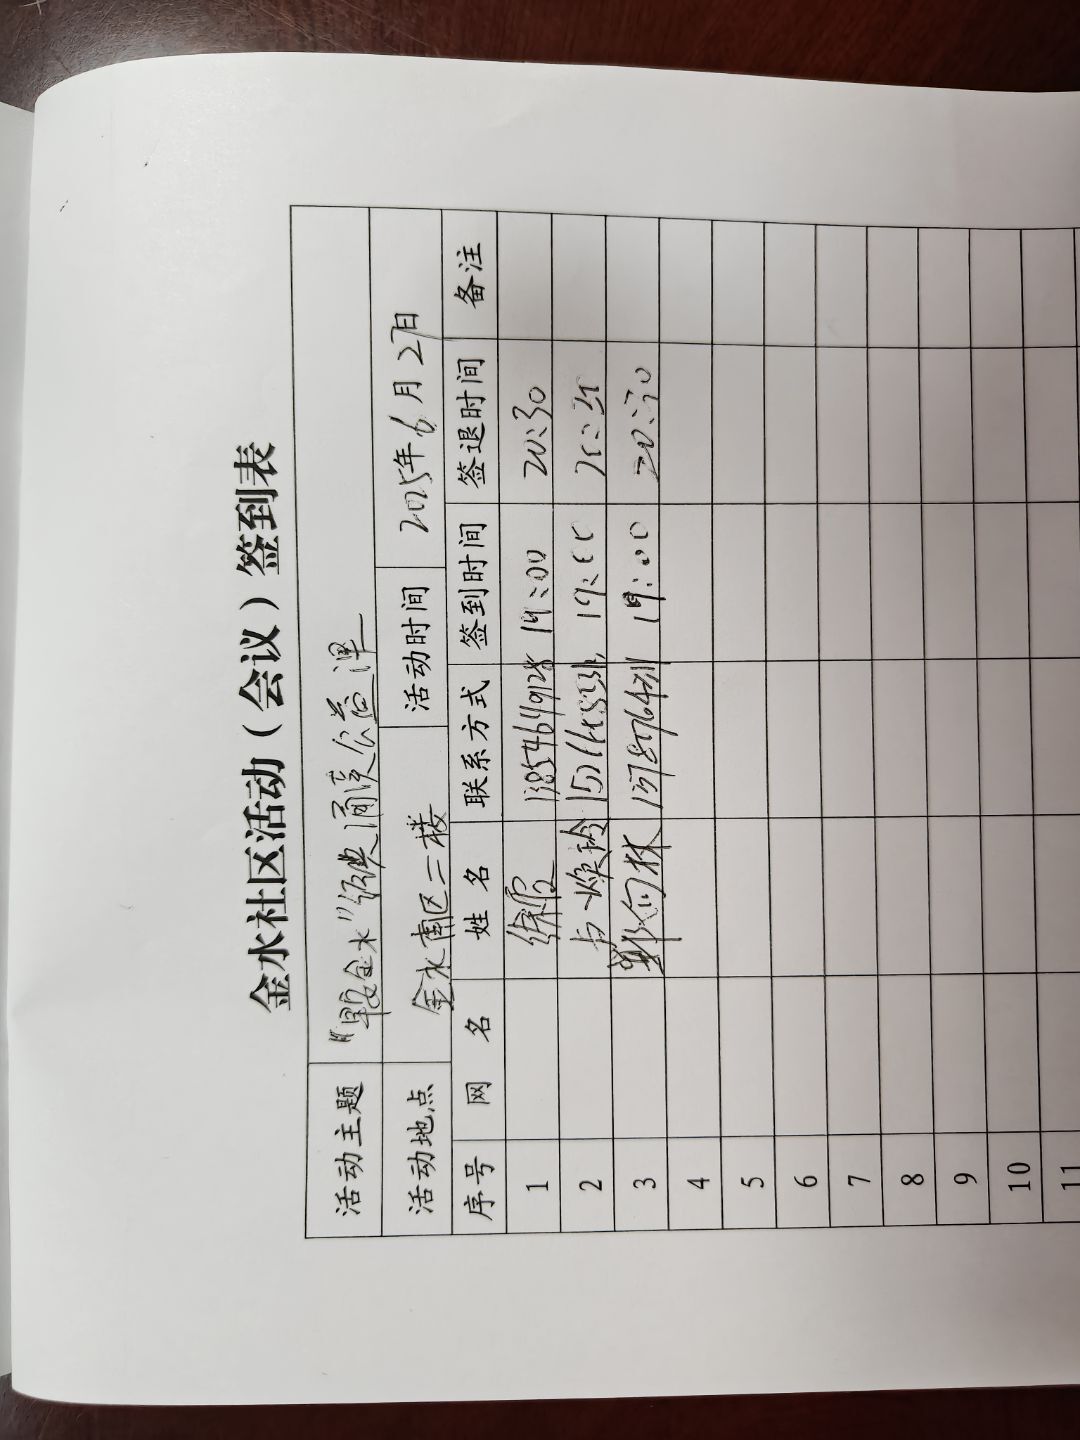 金水社区活动（会议）签到表
活动主题 金水"经典诵读公益课
活动地点 金水南区二楼 活动时间 2025年6月27日
序号 网 名 姓 名 联系方式 签到时间 签退时间 备注
1 19:00 20:30
2 焕玲 19:00
3 郭向林 19:00 20:30
4
5
6
7
8
9
10
11